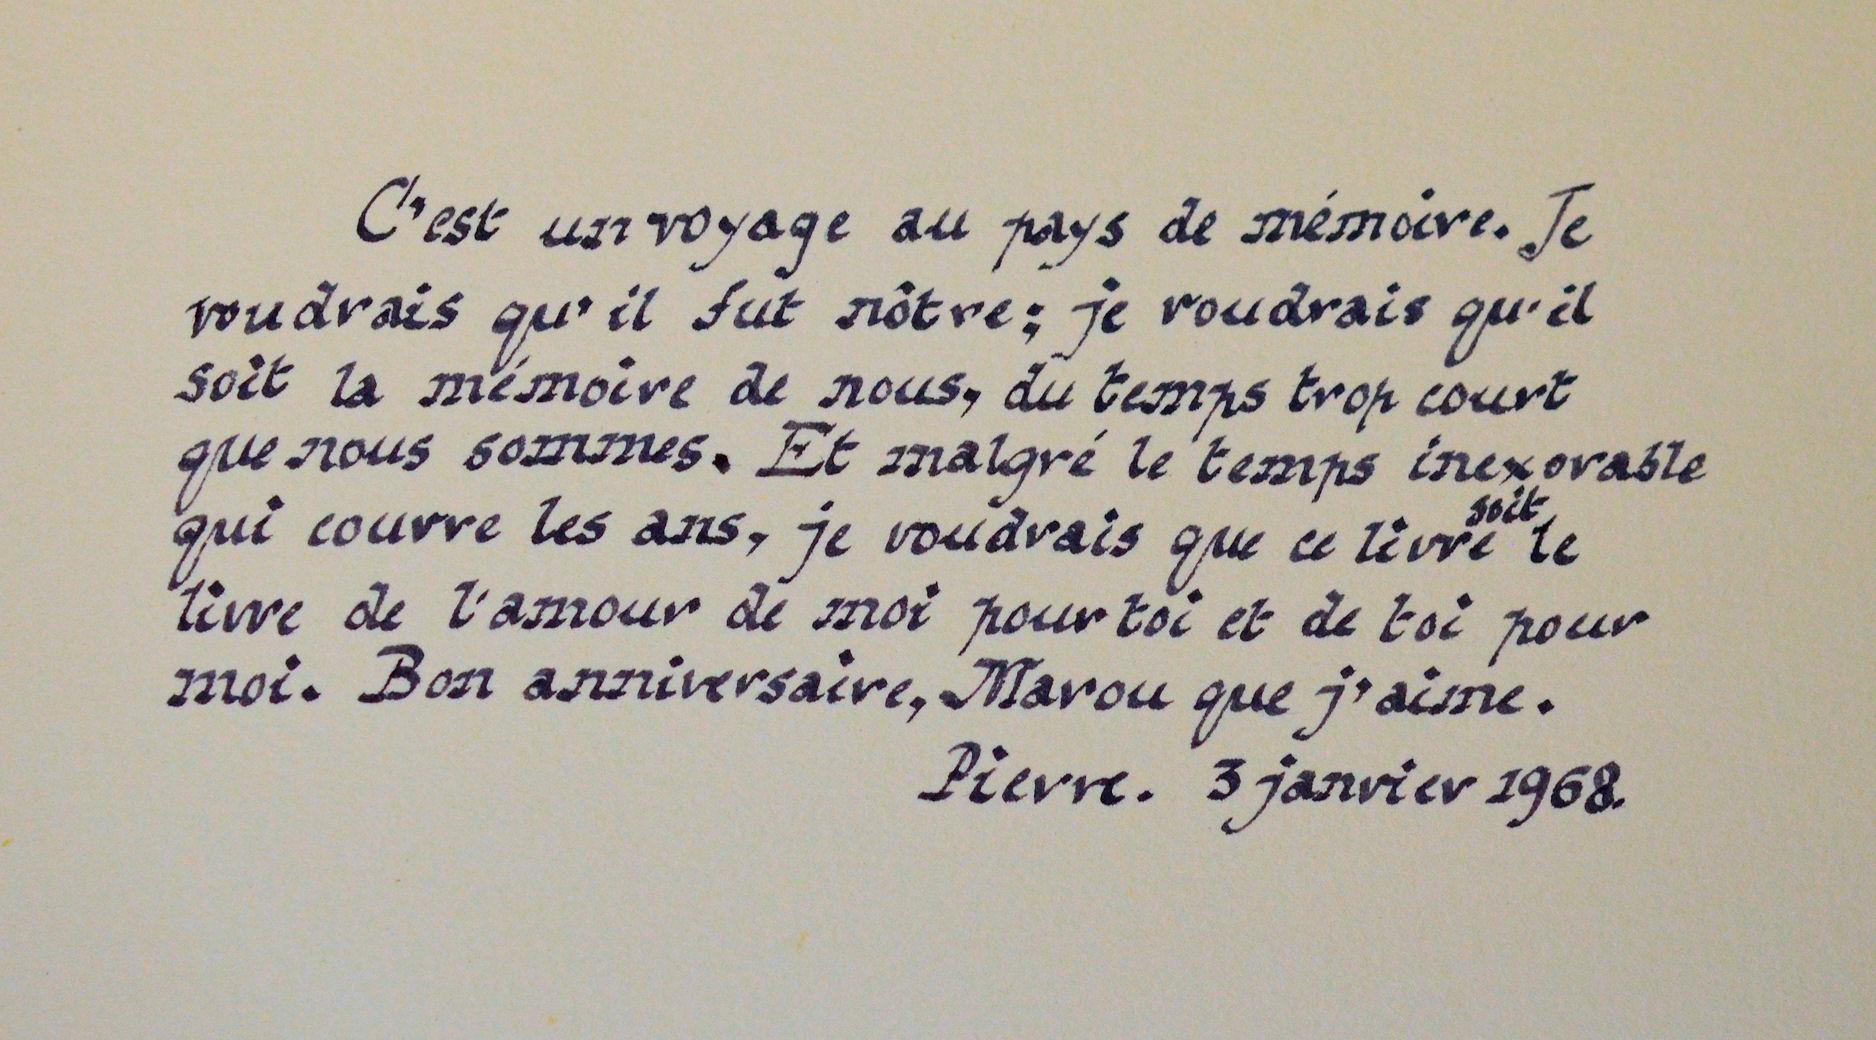 C'est un voyage au pays de mémoire. Je
voudrais qu'il fut nôtre; je voudrais qu'il
soit la mémoire de nous, du temps trop court
que nous sommes. Et malgré le temps inexorable
qui courre les ans, je voudrais que ce livre soit le
livre de l'amour de moi pour toi et de toi pour
moi. Bon anniversaire, Marou que j'aime.
Pierre. 3 janvier 1968.